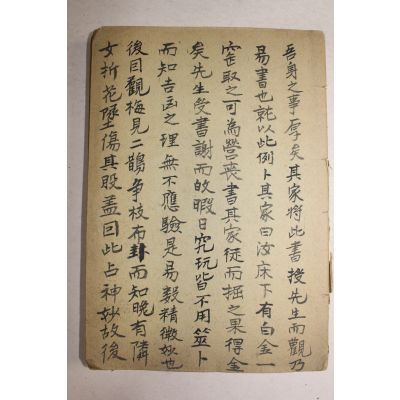 吾身之事厚矣其家將此書授先生而觀乃
易書也就以此例卜其家曰汝床下有白金一
窖取之可為營喪書其家從而掘之果得金
矣先生受書謝而故暇日究玩皆不用筮卜
而知吉凶之理無不應驗是易数精微妙也
後因觀梅見二鵲争枝布卦而知晚有隣
女折花墜傷其股盖因此占神妙故後